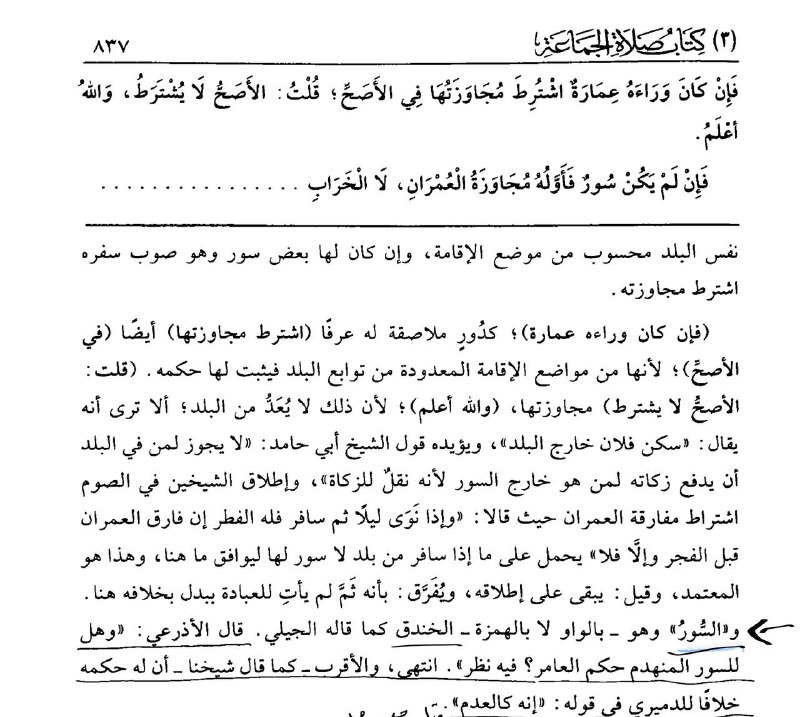 (٣) كِتَابُ صَلَاةِ الجَمَاعَةِ ٨٣٧
فَإِنْ كَانَ وَرَاءَهُ عِمَارَةٌ اشْتُرِطَ مُجَاوَزَتُهَا فِي الأَصَحِّ؛ قُلْتُ: الأَصَحُّ لَا يُشْتَرَطُ، وَاللهُ
أَعْلَمُ.
فَإِنْ لَمْ يَكُنْ سُورٌ فَأَوَّلُهُ مُجَاوَزَةُ الْعُمْرَانِ، لَا الْخَرَابِ ................
نفس البلد محسوب من موضع الإقامة، وإن كان لها بعض سور وهو صوب سفره
اشترط مجاوزته.
(فإن كان وراءه عمارة)؛ كدُورٍ ملاصقة له عرفًا (اشترط مجاوزتها) أيضًا (في
الأصحِّ)؛ لأنها من مواضع الإقامة المعدودة من توابع البلد فيثبت لها حكمه. (قلت:
الأصحُّ لا يشترط) مجاوزتها، (والله أعلم)؛ لأن ذلك لا يُعَدُّ من البلد؛ ألا ترى أنه
يقال: «سكن فلان خارج البلد»، ويؤيده قول الشيخ أبي حامد: «لا يجوز لمن في البلد
أن يدفع زكاته لمن هو خارج السور لأنه نقلٌ للزكاة»، وإطلاق الشيخين في الصوم
اشتراط مفارقة العمران حيث قالا: «وإذا نَوَى ليلًا ثم سافر فله الفطر إن فارق العمران
قبل الفجر وإلَّا فلا» يحمل على ما إذا سافر من بلد لا سور لها ليوافق ما هنا، وهذا هو
المعتمد، وقيل: يبقى على إطلاقه، ويُفَرَّق: بأنه ثَمَّ لم يأتِ للعبادة ببدل بخلافه هنا.
و«السُّورُ» وهو ـ بالواو لا بالهمزة ـ الخندق كما قاله الجيلي. قال الأذرعي: «وهل
للسور المنهدم حكم العامر؟ فيه نظر». انتهى، والأقرب ـ كما قال شيخنا ـ أن له حكمه
خلافًا للدميري في قوله: «إنه كالعدم».